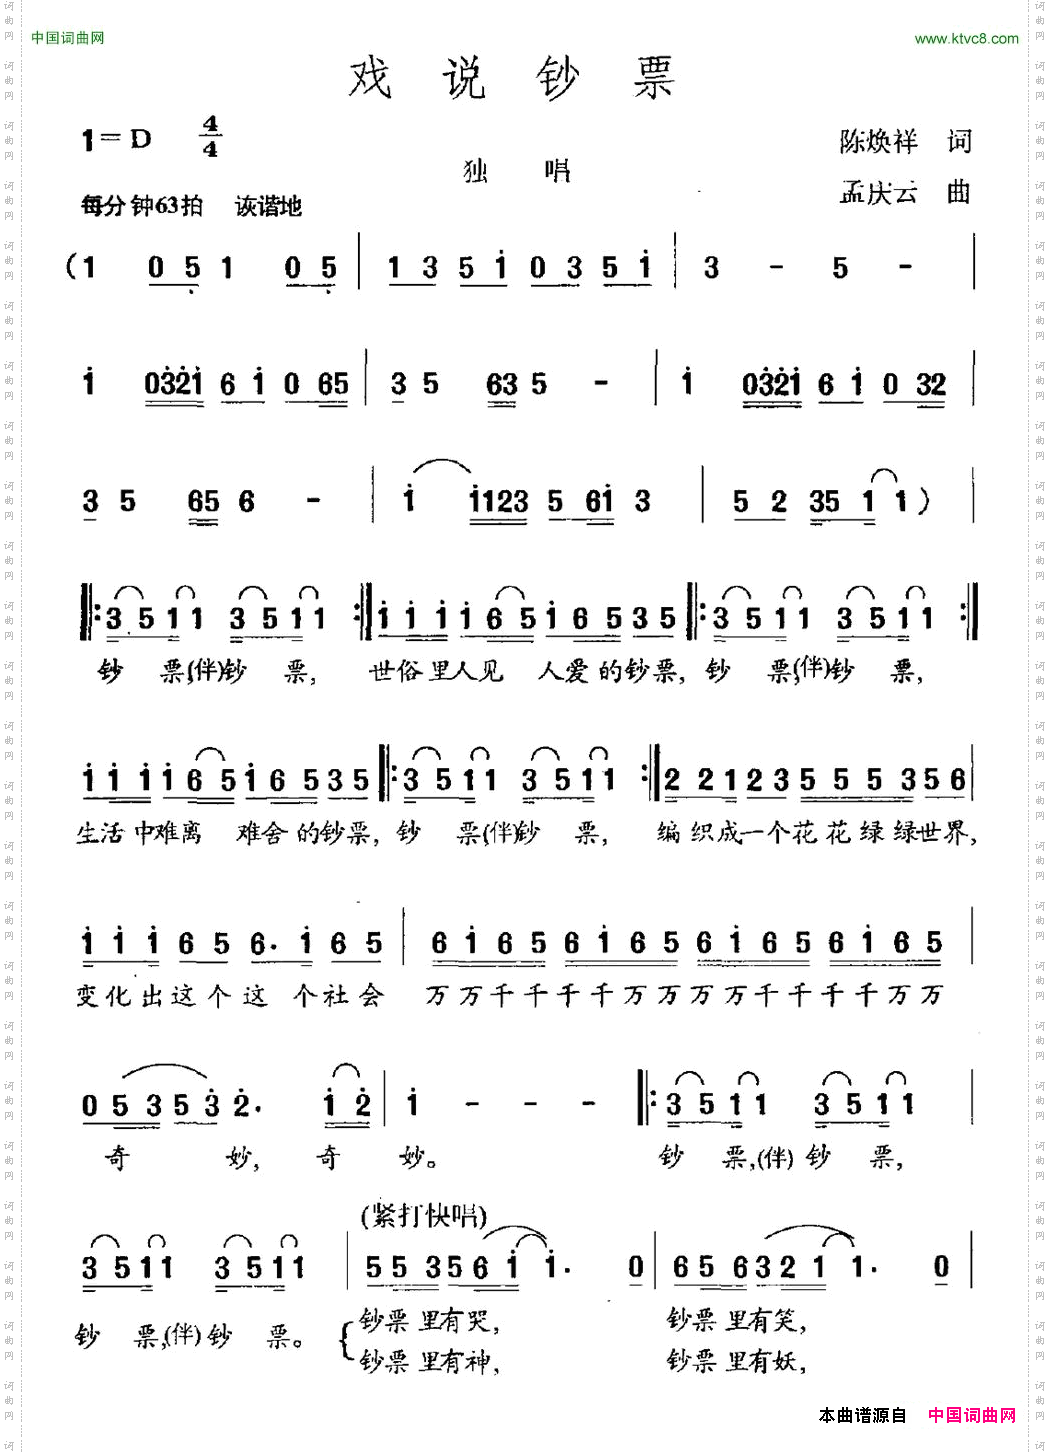 中国词曲网 www.ktvc8.com
戏说钞票
1=D 4/4
陈焕祥 词
独唱
孟庆云 曲
每分钟63拍 诙谐地
(1 0 5 1 0 5 | 1 3 5 1 0 3 5 1 | 3 - 5 - |
1 0321 6 1 0 65 | 3 5 63 5 - | 1 0321 6 1 0 32 |
3 5 65 6 - | 1 1123 5 61 3 | 5 2 35 1 1) |
‖: 3 5 1 1 3 5 1 1 :‖ 1 1 1 1 6 5 1 6 5 3 5 ‖: 3 5 1 1 3 5 1 1 :‖
钞票,(伴)钞票, 世俗里人见人爱的钞票, 钞票,(伴)钞票,
1 1 1 1 6 5 1 6 5 3 5 ‖: 3 5 1 1 3 5 1 1 :‖ 2 2 1 2 3 5 5 5 3 5 6 |
生活中难离难舍的钞票, 钞票(伴)钞票, 编织成一个花花绿绿世界,
1 1 1 6 5 6. 1 6 5 | 6 1 6 5 6 1 6 5 6 1 6 5 6 1 6 5 |
变化出这个这个社会 万万千千千千万万万万千千千千万万
0 5 3 5 3 2. 1 2 | 1 - - - ‖: 3 5 1 1 3 5 1 1 |
奇妙, 奇妙。 钞票,(伴)钞票,
(紧打快唱)
3 5 1 1 3 5 1 1 | 5 5 3 5 6 1 1. 0 | 6 5 6 3 2 1 1. 0 |
钞票,(伴)钞票。 钞票里有哭, 钞票里有笑,
钞票里有神, 钞票里有妖,
本曲谱源自 中国词曲网